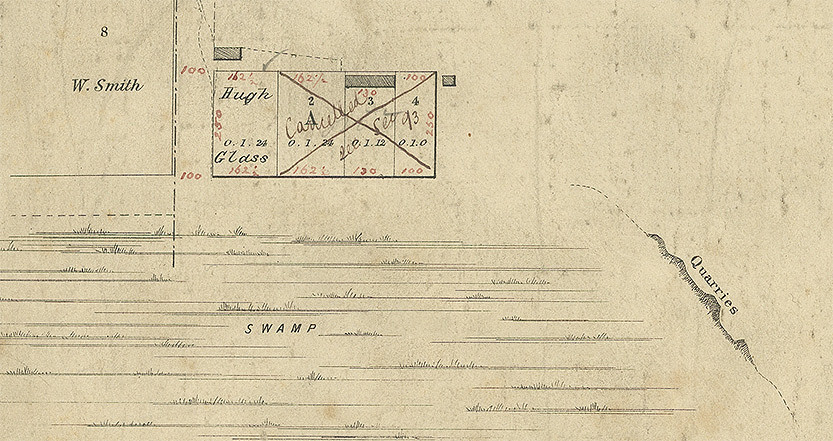 8
W. Smith
100
162½
162½
130
100
Hugh
2
3
4
A
Cancelled
see Sec 93
250
250
0. 1. 24
0. 1. 24
0. 1. 12
0. 1. 0
Glass
100
162½
162½
130
100
Quarries
SWAMP